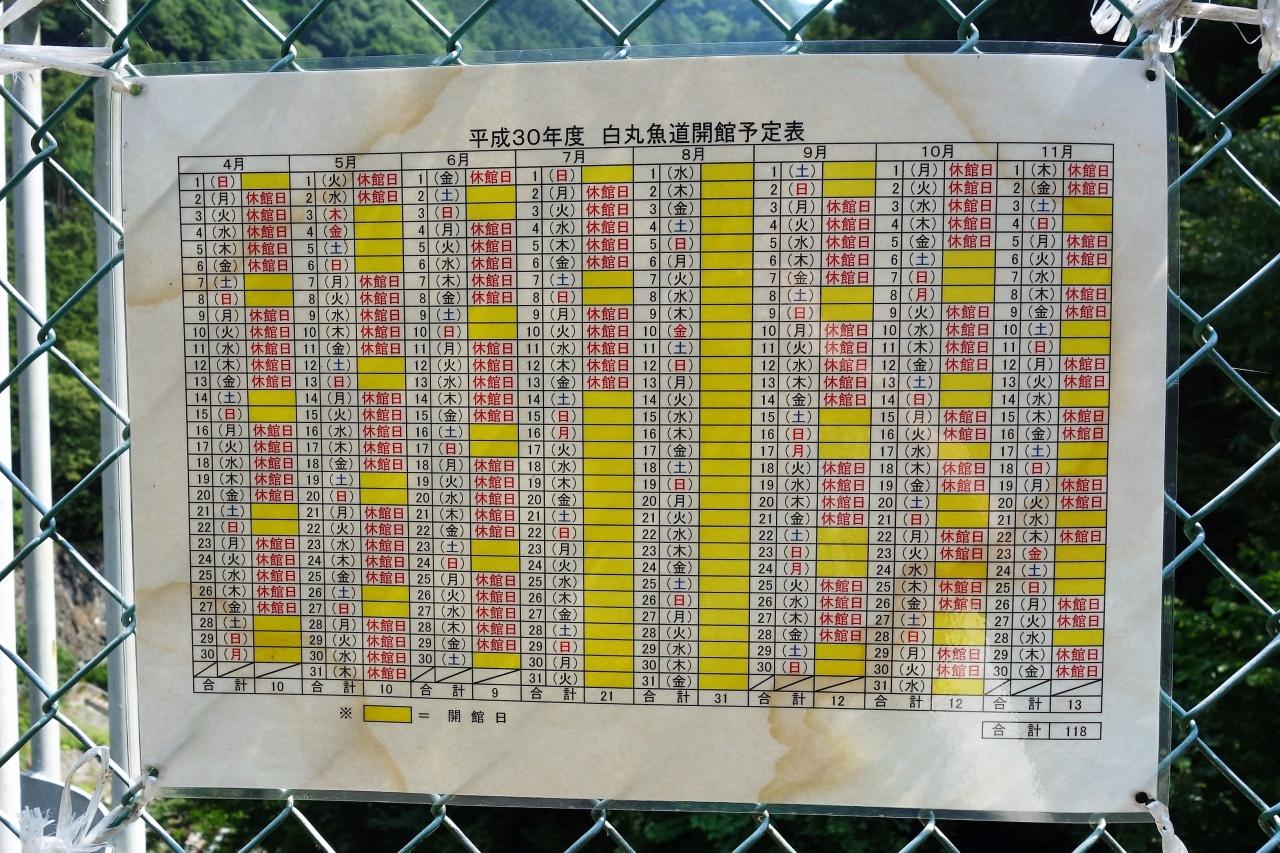 平成30年度 白丸魚道開館予定表
4月 5月 6月 7月 8月 9月 10月 11月
1 (日) 1 (火) 休館日 1 (金) 休館日 1 (日) 1 (水) 1 (土) 1 (月) 休館日 1 (木) 休館日
2 (月) 休館日 2 (水) 休館日 2 (土) 2 (月) 休館日 2 (木) 2 (日) 2 (火) 休館日 2 (金) 休館日
3 (火) 休館日 3 (木) 3 (日) 3 (火) 休館日 3 (金) 3 (月) 休館日 3 (水) 休館日 3 (土)
4 (水) 休館日 4 (金) 4 (月) 休館日 4 (水) 休館日 4 (土) 4 (火) 休館日 4 (木) 休館日 4 (日)
5 (木) 休館日 5 (土) 5 (火) 休館日 5 (木) 休館日 5 (日) 5 (水) 休館日 5 (金) 休館日 5 (月) 休館日
6 (金) 休館日 6 (日) 6 (水) 休館日 6 (金) 休館日 6 (月) 6 (木) 休館日 6 (土) 6 (火) 休館日
7 (土) 7 (月) 休館日 7 (木) 休館日 7 (土) 7 (火) 7 (金) 休館日 7 (日) 7 (水)
8 (日) 8 (火) 休館日 8 (金) 休館日 8 (日) 8 (水) 8 (土) 8 (月) 8 (木) 休館日
9 (月) 休館日 9 (水) 休館日 9 (土) 9 (月) 休館日 9 (木) 9 (日) 9 (火) 休館日 9 (金) 休館日
10 (火) 休館日 10 (木) 休館日 10 (日) 10 (火) 休館日 10 (金) 10 (月) 休館日 10 (水) 休館日 10 (土)
11 (水) 休館日 11 (金) 休館日 11 (月) 休館日 11 (水) 休館日 11 (土) 11 (火) 休館日 11 (木) 休館日 11 (日)
12 (木) 休館日 12 (土) 12 (火) 休館日 12 (木) 休館日 12 (日) 12 (水) 休館日 12 (金) 休館日 12 (月) 休館日
13 (金) 休館日 13 (日) 13 (水) 休館日 13 (金) 休館日 13 (月) 13 (木) 休館日 13 (土) 13 (火) 休館日
14 (土) 14 (月) 休館日 14 (木) 休館日 14 (土) 14 (火) 14 (金) 休館日 14 (日) 14 (水)
15 (日) 15 (火) 休館日 15 (金) 休館日 15 (日) 15 (水) 15 (土) 15 (月) 休館日 15 (木) 休館日
16 (月) 休館日 16 (水) 休館日 16 (土) 16 (月) 16 (木) 16 (日) 16 (火) 休館日 16 (金) 休館日
17 (火) 休館日 17 (木) 休館日 17 (日) 17 (火) 17 (金) 17 (月) 17 (水) 17 (土)
18 (水) 休館日 18 (金) 休館日 18 (月) 休館日 18 (水) 18 (土) 18 (火) 休館日 18 (木) 休館日 18 (日)
19 (木) 休館日 19 (土) 19 (火) 休館日 19 (木) 19 (日) 19 (水) 休館日 19 (金) 休館日 19 (月) 休館日
20 (金) 休館日 20 (日) 20 (水) 休館日 20 (金) 20 (月) 20 (木) 休館日 20 (土) 20 (火) 休館日
21 (土) 21 (月) 休館日 21 (木) 休館日 21 (土) 21 (火) 21 (金) 休館日 21 (日) 21 (水)
22 (日) 22 (火) 休館日 22 (金) 休館日 22 (日) 22 (水) 22 (土) 22 (月) 休館日 22 (木) 休館日
23 (月) 休館日 23 (水) 休館日 23 (土) 23 (月) 23 (木) 23 (日) 23 (火) 休館日 23 (金)
24 (火) 休館日 24 (木) 休館日 24 (日) 24 (火) 24 (金) 24 (月) 24 (水) 24 (土)
25 (水) 休館日 25 (金) 休館日 25 (月) 休館日 25 (水) 25 (土) 25 (火) 休館日 25 (木) 休館日 25 (日)
26 (木) 休館日 26 (土) 26 (火) 休館日 26 (木) 26 (日) 26 (水) 休館日 26 (金) 休館日 26 (月) 休館日
27 (金) 休館日 27 (日) 27 (水) 休館日 27 (金) 27 (月) 27 (木) 休館日 27 (土) 27 (火) 休館日
28 (土) 28 (月) 休館日 28 (木) 休館日 28 (土) 28 (火) 28 (金) 休館日 28 (日) 28 (水)
29 (日) 29 (火) 休館日 29 (金) 休館日 29 (日) 29 (水) 29 (土) 29 (月) 休館日 29 (木) 休館日
30 (月) 30 (水) 休館日 30 (土) 30 (月) 30 (木) 30 (日) 30 (火) 休館日 30 (金) 休館日
31 (木) 休館日 31 (火) 31 (金) 31 (水)
合計 10 合計 10 合計 9 合計 21 合計 31 合計 12 合計 12 合計 13
※ = 開館日
合計 118